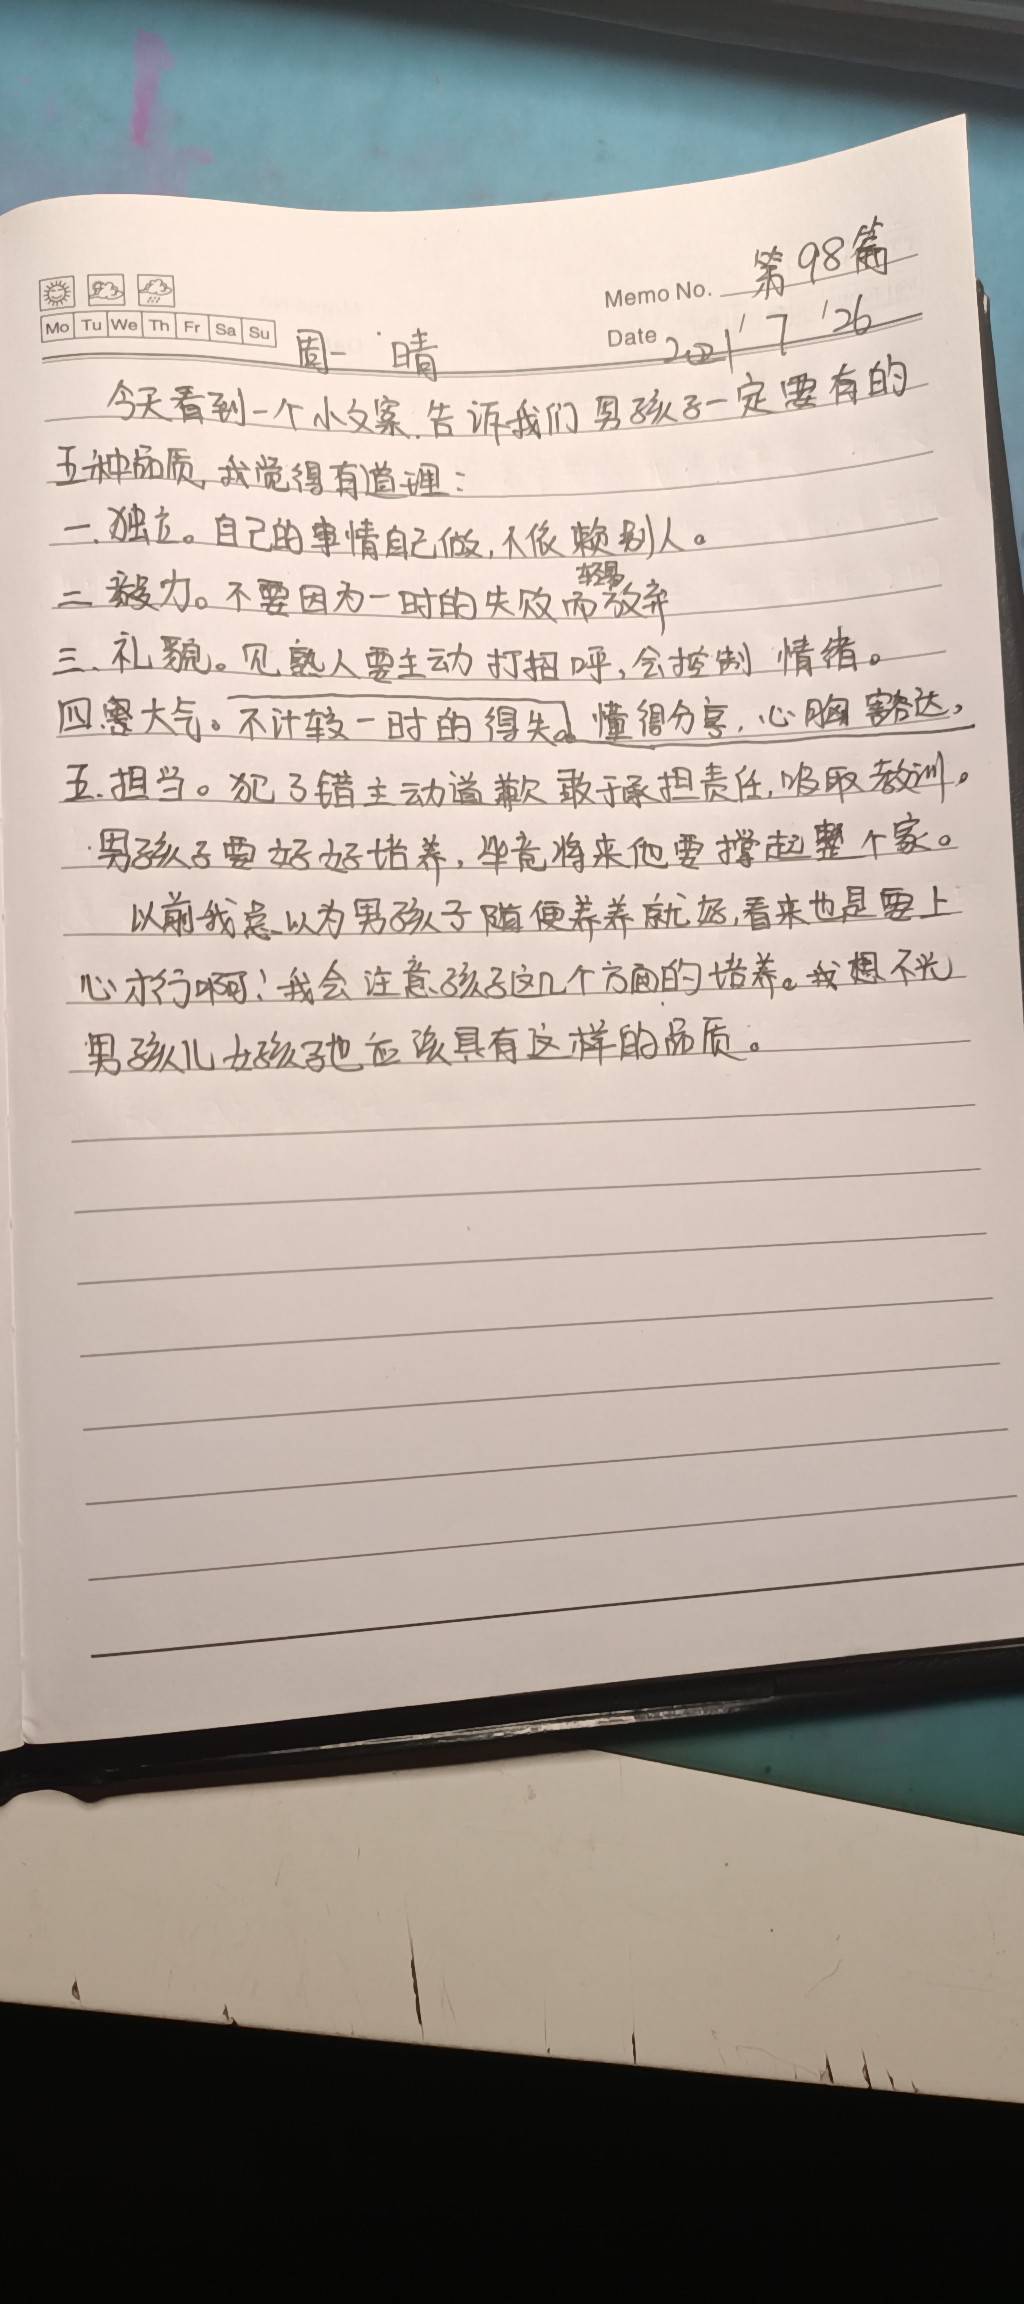 Memo No. 第98篇
Mo Tu We Th Fr Sa Su
周一 晴
Date 2021 / 7 / 26
今天看到一个小文案.告诉我们男孩子一定要有的
五种品质,我觉得有道理:
一.独立。自己的事情自己做,不依赖别人。
轻易
二 毅力。不要因为一时的失败而放弃
三.礼貌。见熟人要主动打招呼,会控制情绪。
四.大气。不计较一时的得失。懂得分享,心胸豁达,
五.担当。犯了错主动道歉 敢于承担责任,吸取教训。
男孩子要好好培养,毕竟将来他要撑起整个家。
以前我总以为男孩子随便养养就好,看来也是要上
心才行啊!我会注意孩子这几个方面的培养。我想不光
男孩儿女孩子也应该具有这样的品质。